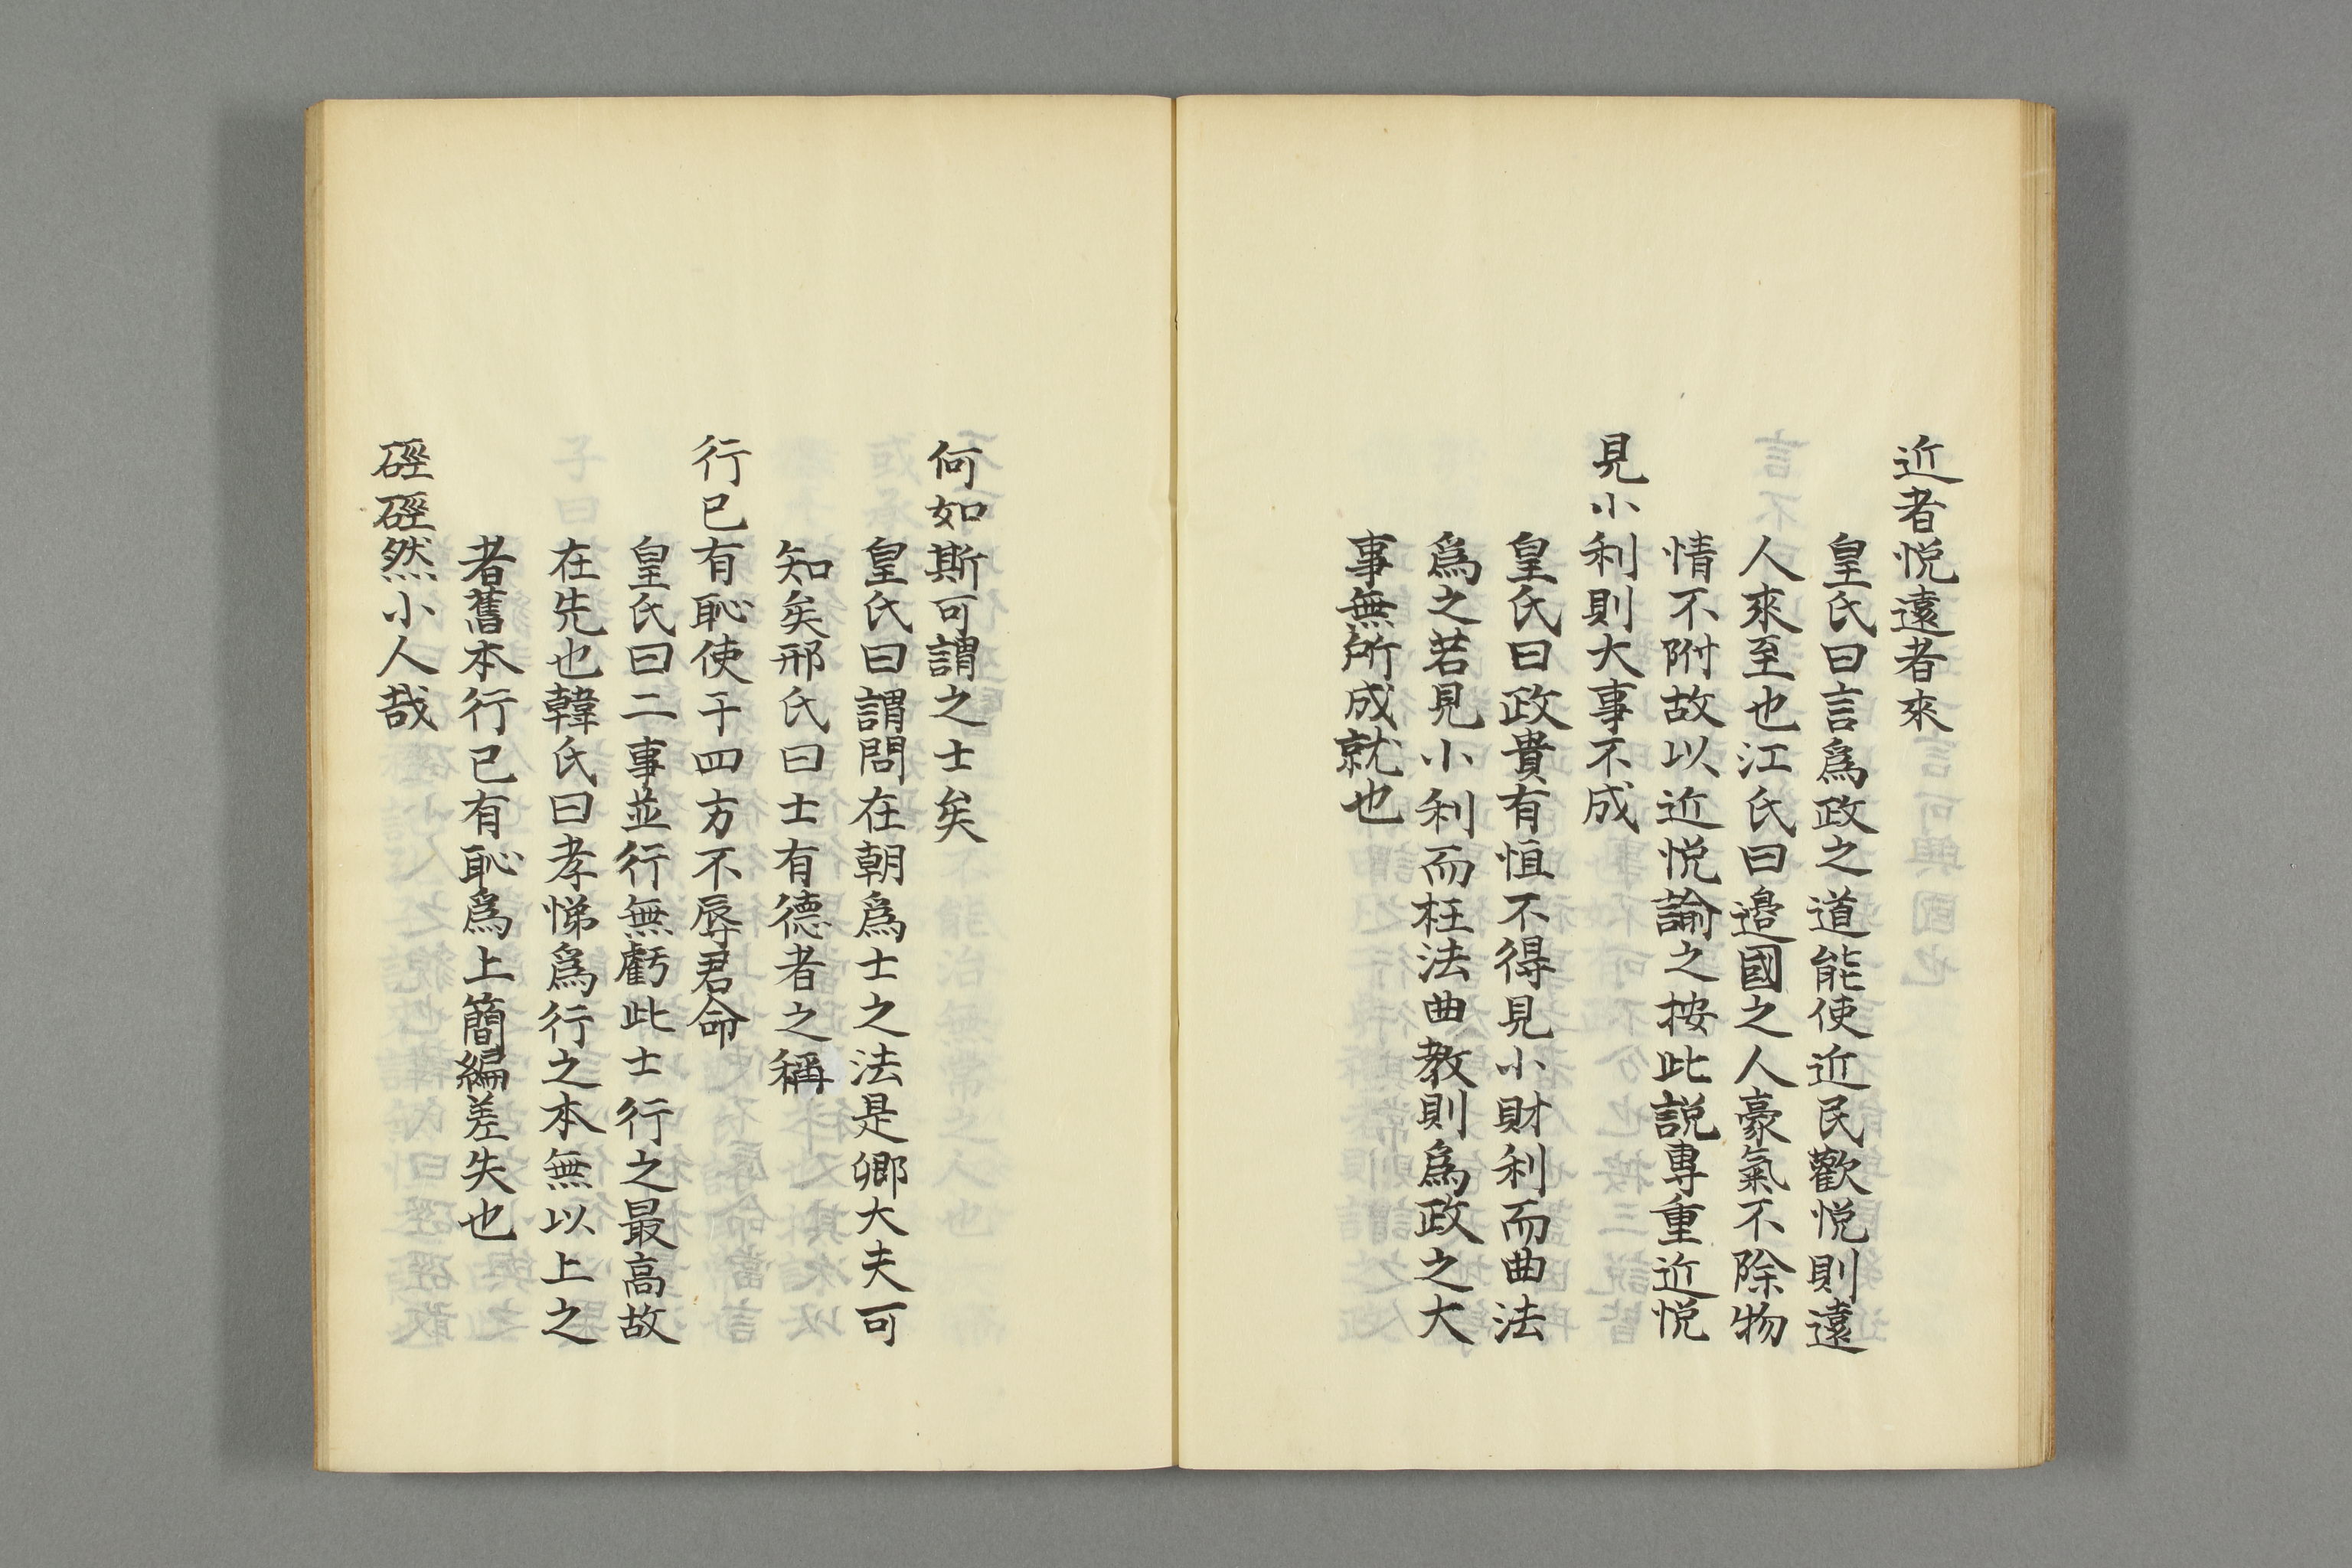 近者悦遠者來
皇氏曰言爲政之道能使近民歡悦則遠
人來至也江氏曰邉國之人豪氣不除物
情不附故以近悦諭之按此説專重近悦
見小利則大事不成
皇氏曰政貴有恒不得見小財利而曲法
爲之若見小利而枉法曲教則爲政之大
事無所成就也
何如斯可謂之士矣
皇氏曰謂問在朝爲士之法是卿大夫可
知矣邢氏曰士有德者之稱
行已有恥使于四方不辱君命
皇氏曰二事並行無虧此士行之最高故
在先也韓氏曰孝悌爲行之本無以上之
者舊本行已有恥爲上簡編差失也
硜硜然小人哉